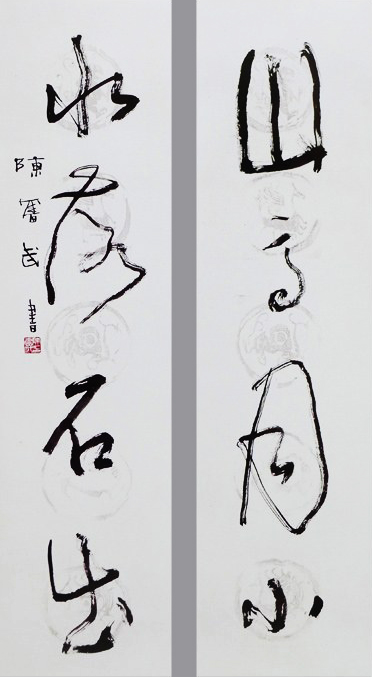 山高月小
水落石出
陳奮武書